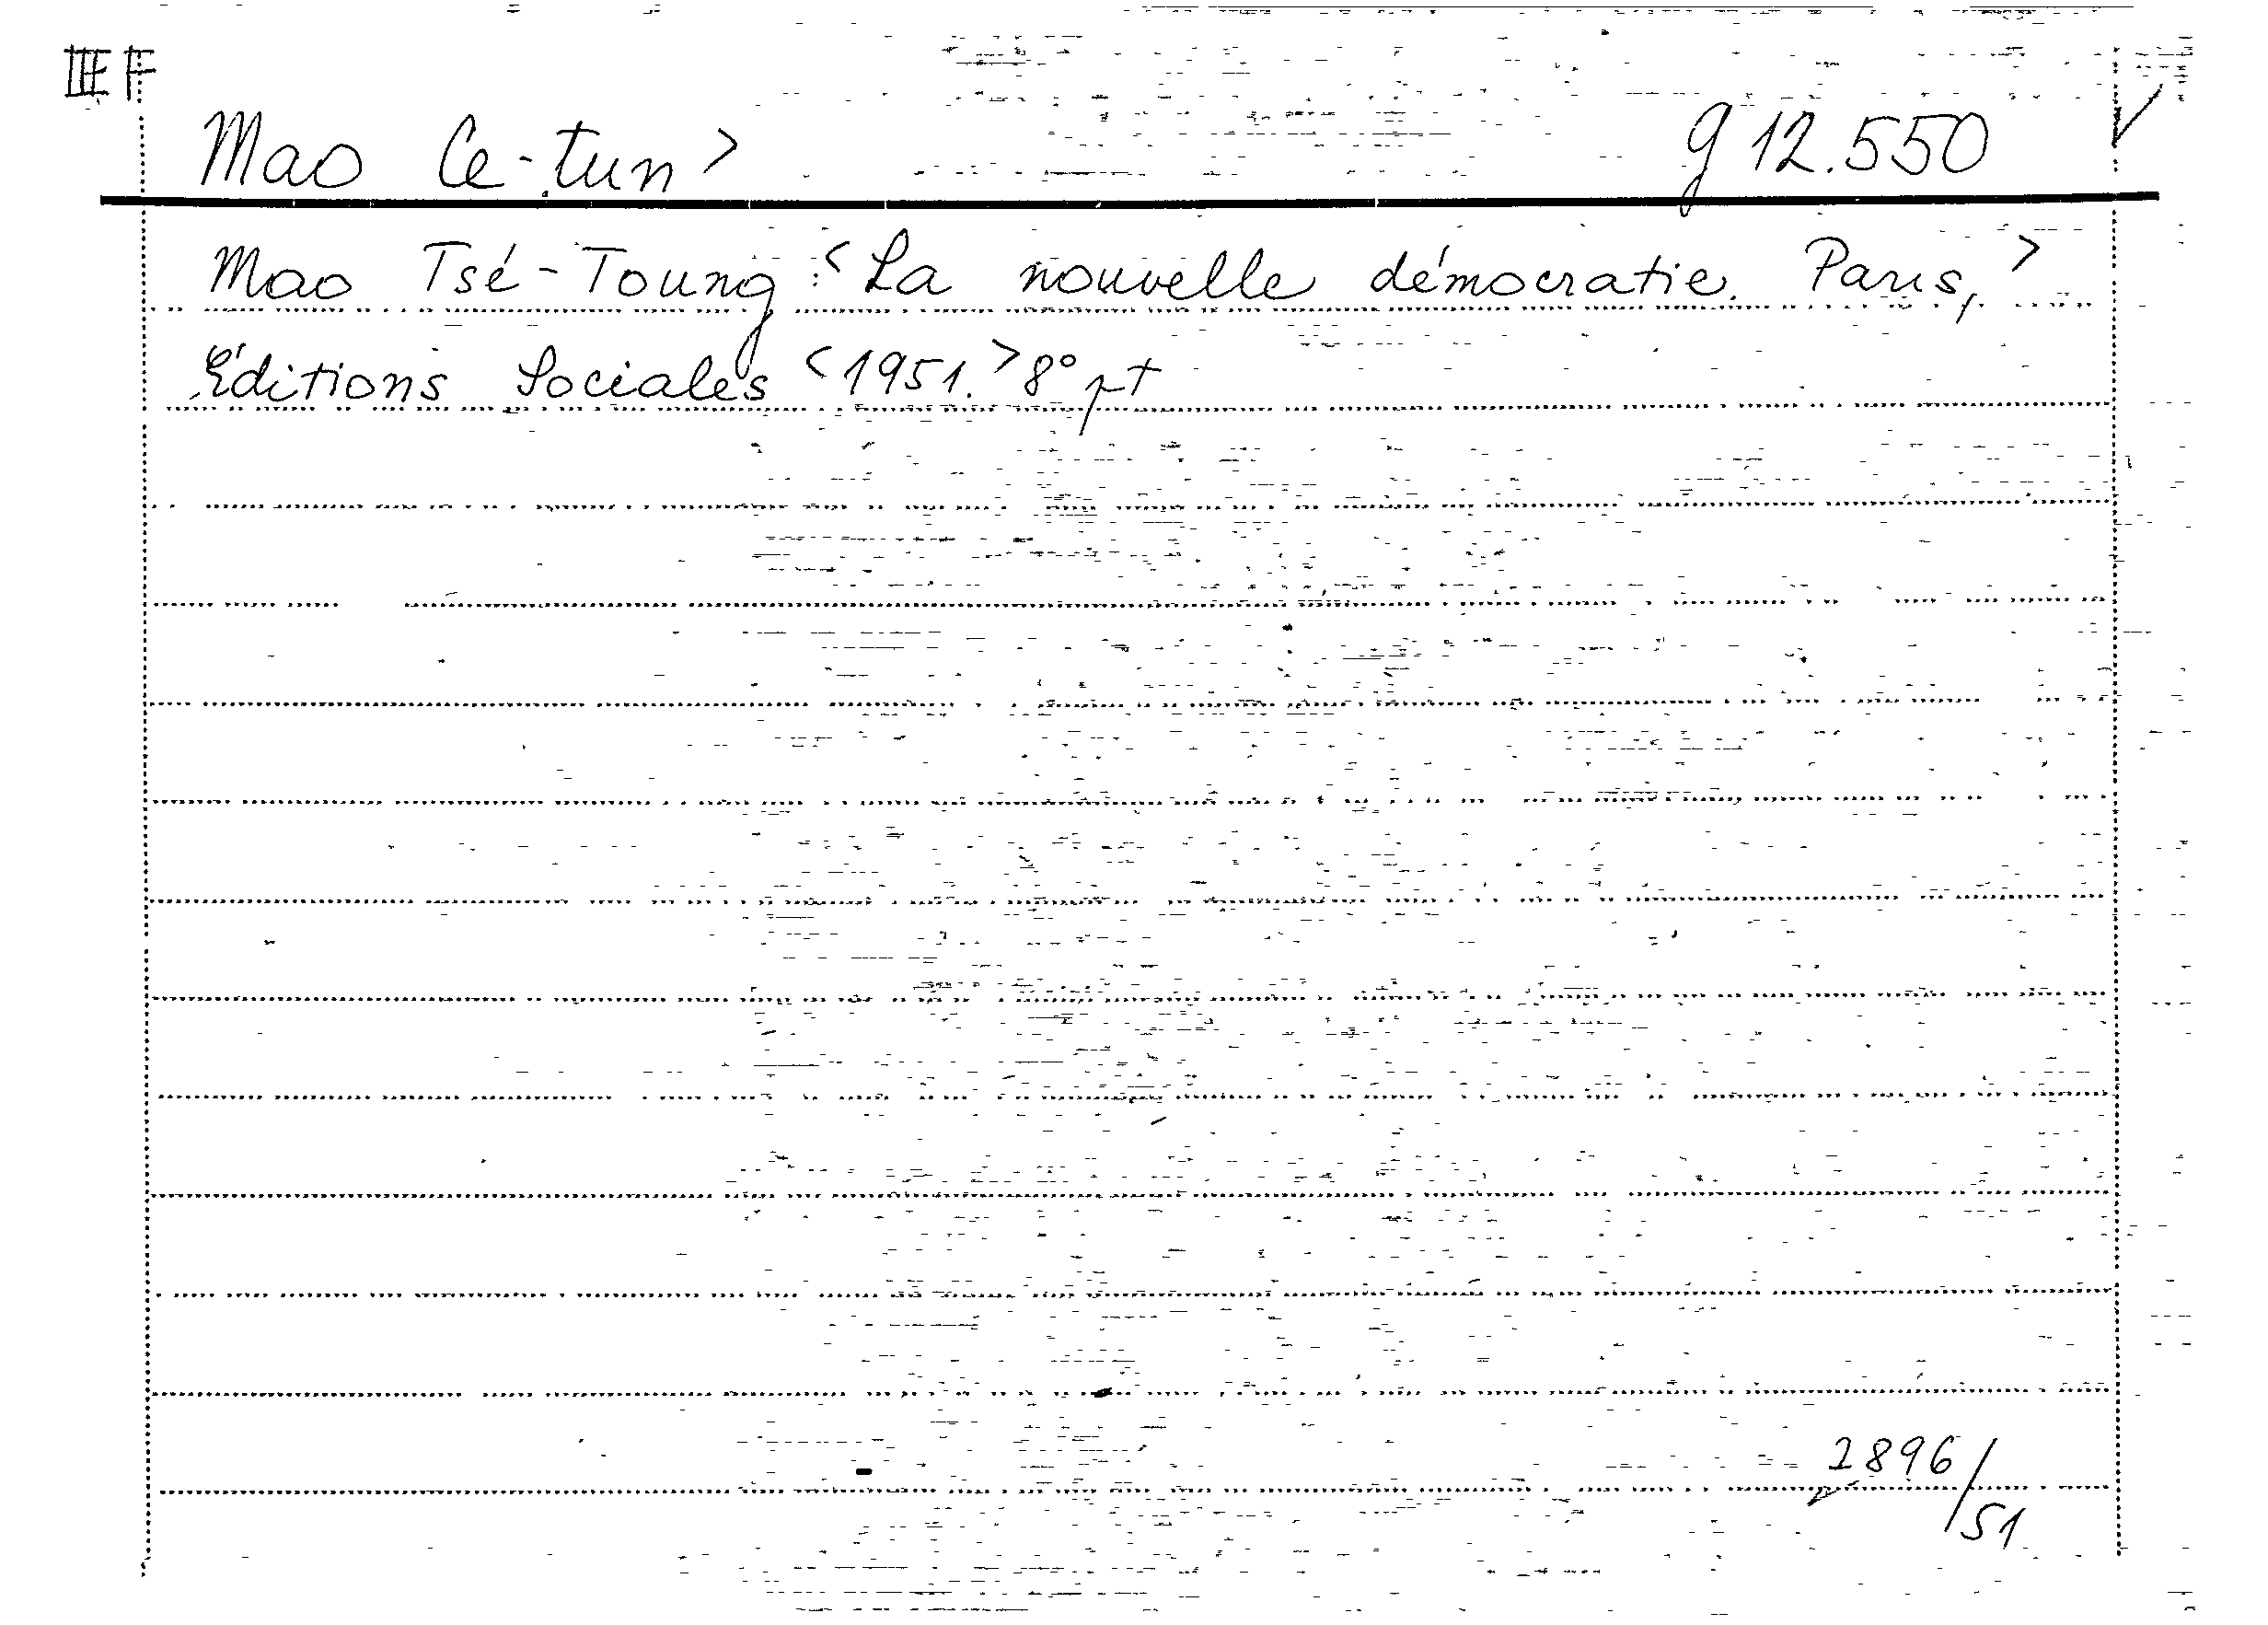 III F
Mao Ce-tun > g 12.550
Mao Tsé-Toung: <La nouvelle démocratie. Paris, >
Éditions Sociales <1951.> 8° pt
2896/51